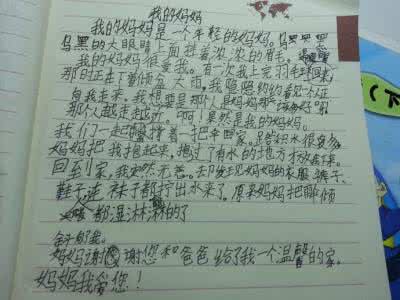 我的妈妈
我的妈妈是一个年轻的妈妈。
乌黑的大眼睛上面挂着浓浓的眉毛。
我的妈妈很爱我。有一次我上完羽毛球
那时正在下着倾盆大雨。我隐隐约约看见一个人正
向我走来。我想要是那个人是妈妈那该多好
那个人越走越近。啊!果然是我的妈妈。
我们一起撑着一把伞回家。路积水很多
妈妈把我抱起来,抱过了有水的地方才放下来。
回到家,我安然无恙。却发现妈妈的衣服、裤子、
鞋子连袜子都拧出水来了。原来妈妈把伞倾
都湿淋淋的了
给我。
妈妈谢谢您和爸爸给了我一个温馨的家。
妈妈我爱您!
(下